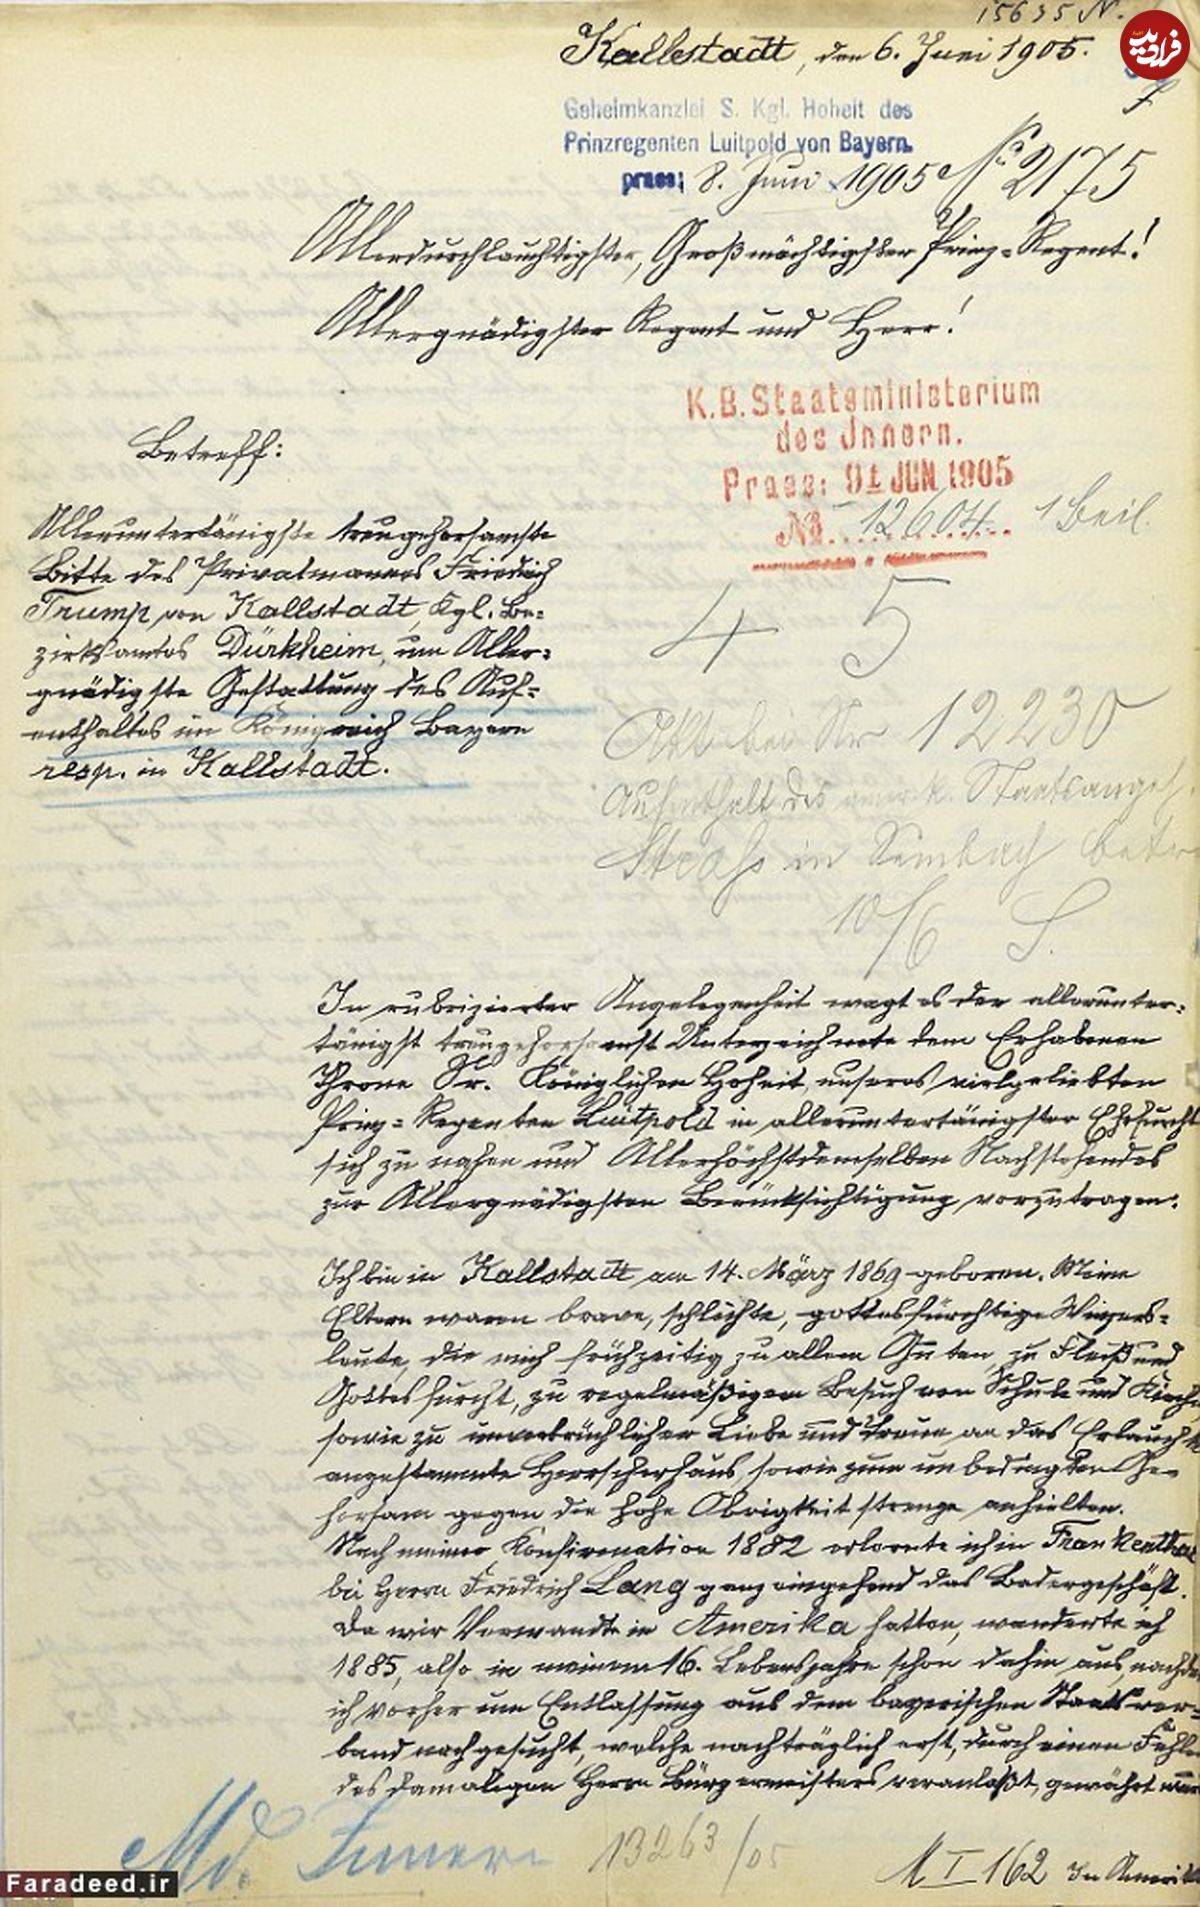 15635 N.
فرادید
Kallstadt, den 6. Juni 1905.
Geheimkanzlei S. Kgl. Hoheit des
Prinzregenten Luitpold von Bayern.
praes: 8. Juni 1905 No 2175
Allerdurchlauchtigster, Großmächtigster Prinz-Regent!
Allergnädigster Regent und Herr!
K.B. Staatsministerium
des Innern.
Praes: 9 JUN. 1905
No 12604. 1 Beil.
Betreff:
Alleruntertänigste treugehorsamste
Bitte des Privatmannes Friedrich
Trump von Kallstadt, Kgl. Be-
zirksamtes Dürkheim, um Aller-
gnädigste Gestattung des Auf-
enthaltes im Königreich Bayern
resp. in Kallstadt.
4 5
Nr 12230
Aufenthalt des amerik. Staatsangeh.
in Sembach betr
10/6 S.
In rubrizierter Angelegenheit wagt es der allerunter-
tänigst treugehorsamst Unterzeichnete dem Erhabenen
Throne Sr. Königlichen Hoheit, unseres vielgeliebten
Prinz-Regenten Luitpold in alleruntertänigster Ehrfurcht
sich zu nahen und Allerhöchstdemselben Nachstehendes
zur Allergnädigsten Berücksichtigung vorzutragen:
Ich bin in Kallstadt am 14. März 1869 geboren. Meine
Eltern waren brave, schlichte, gottesfürchtige Winzers-
leute, die mich frühzeitig zu allem Guten, zu Fleiß und
Gottesfurcht, zu regelmäßigem Besuch von Schule und Kirche
sowie zu unverbrüchlicher Liebe und Treue an das Erlauchte
angestammte Herrscherhaus, sowie zum unbedingten Ge-
horsam gegen die hohe Obrigkeit strenge anhielten.
Nach meiner Konfirmation 1882 erlernte ich in Frankenthal
bei Herrn Friedrich Lang ganz eingehend das Badergeschäft.
Da wir Verwandte in Amerika hatten, wanderte ich
1885, also in meinem 16. Lebensjahre schon dahin aus, nachdem
ich vorher um Entlassung aus dem bayerischen Staatsver-
band nachgesucht, welche nachträglich erst, durch einen Fehler
des damaligen Herrn Bürgermeisters veranlaßt, gewährt wurde
Md. Innern 13263/05
M I 162 In Amerika
Faradeed.ir